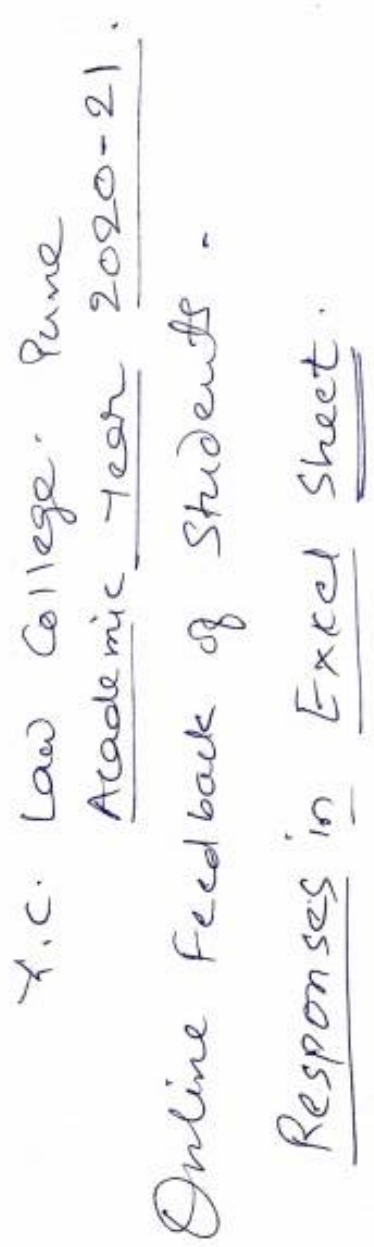 Y.C. Law College. Pune
Academic Year 2020-21.
Online Feedback of Students.
Responses in Excel Sheet.